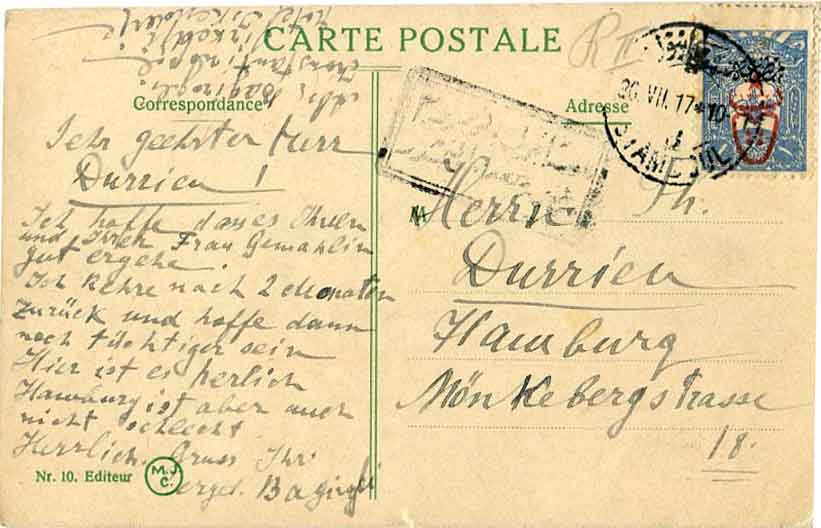 CARTE POSTALE
R II
Correspondance
Adresse
30 VII. 17 * 10
STAMBOUL
Constantinopel
Sehr geehrter Herr
Durrieu!
Ich hoffe dass es Ihnen
und Ihrer Frau Gemahlin
gut ergehe.
Ich kehre nach 2 Monaten
zurück und hoffe dann
noch tüchtiger sein
Hier ist es herlich
Hamburg ist aber auch
nicht schlecht
Herrlich. Gruss Ihr
ergeb.
Herrn Th.
Durrieu
Hamburg
Mönkebergstrasse
18.
Nr. 10. Editeur
M.J.C.